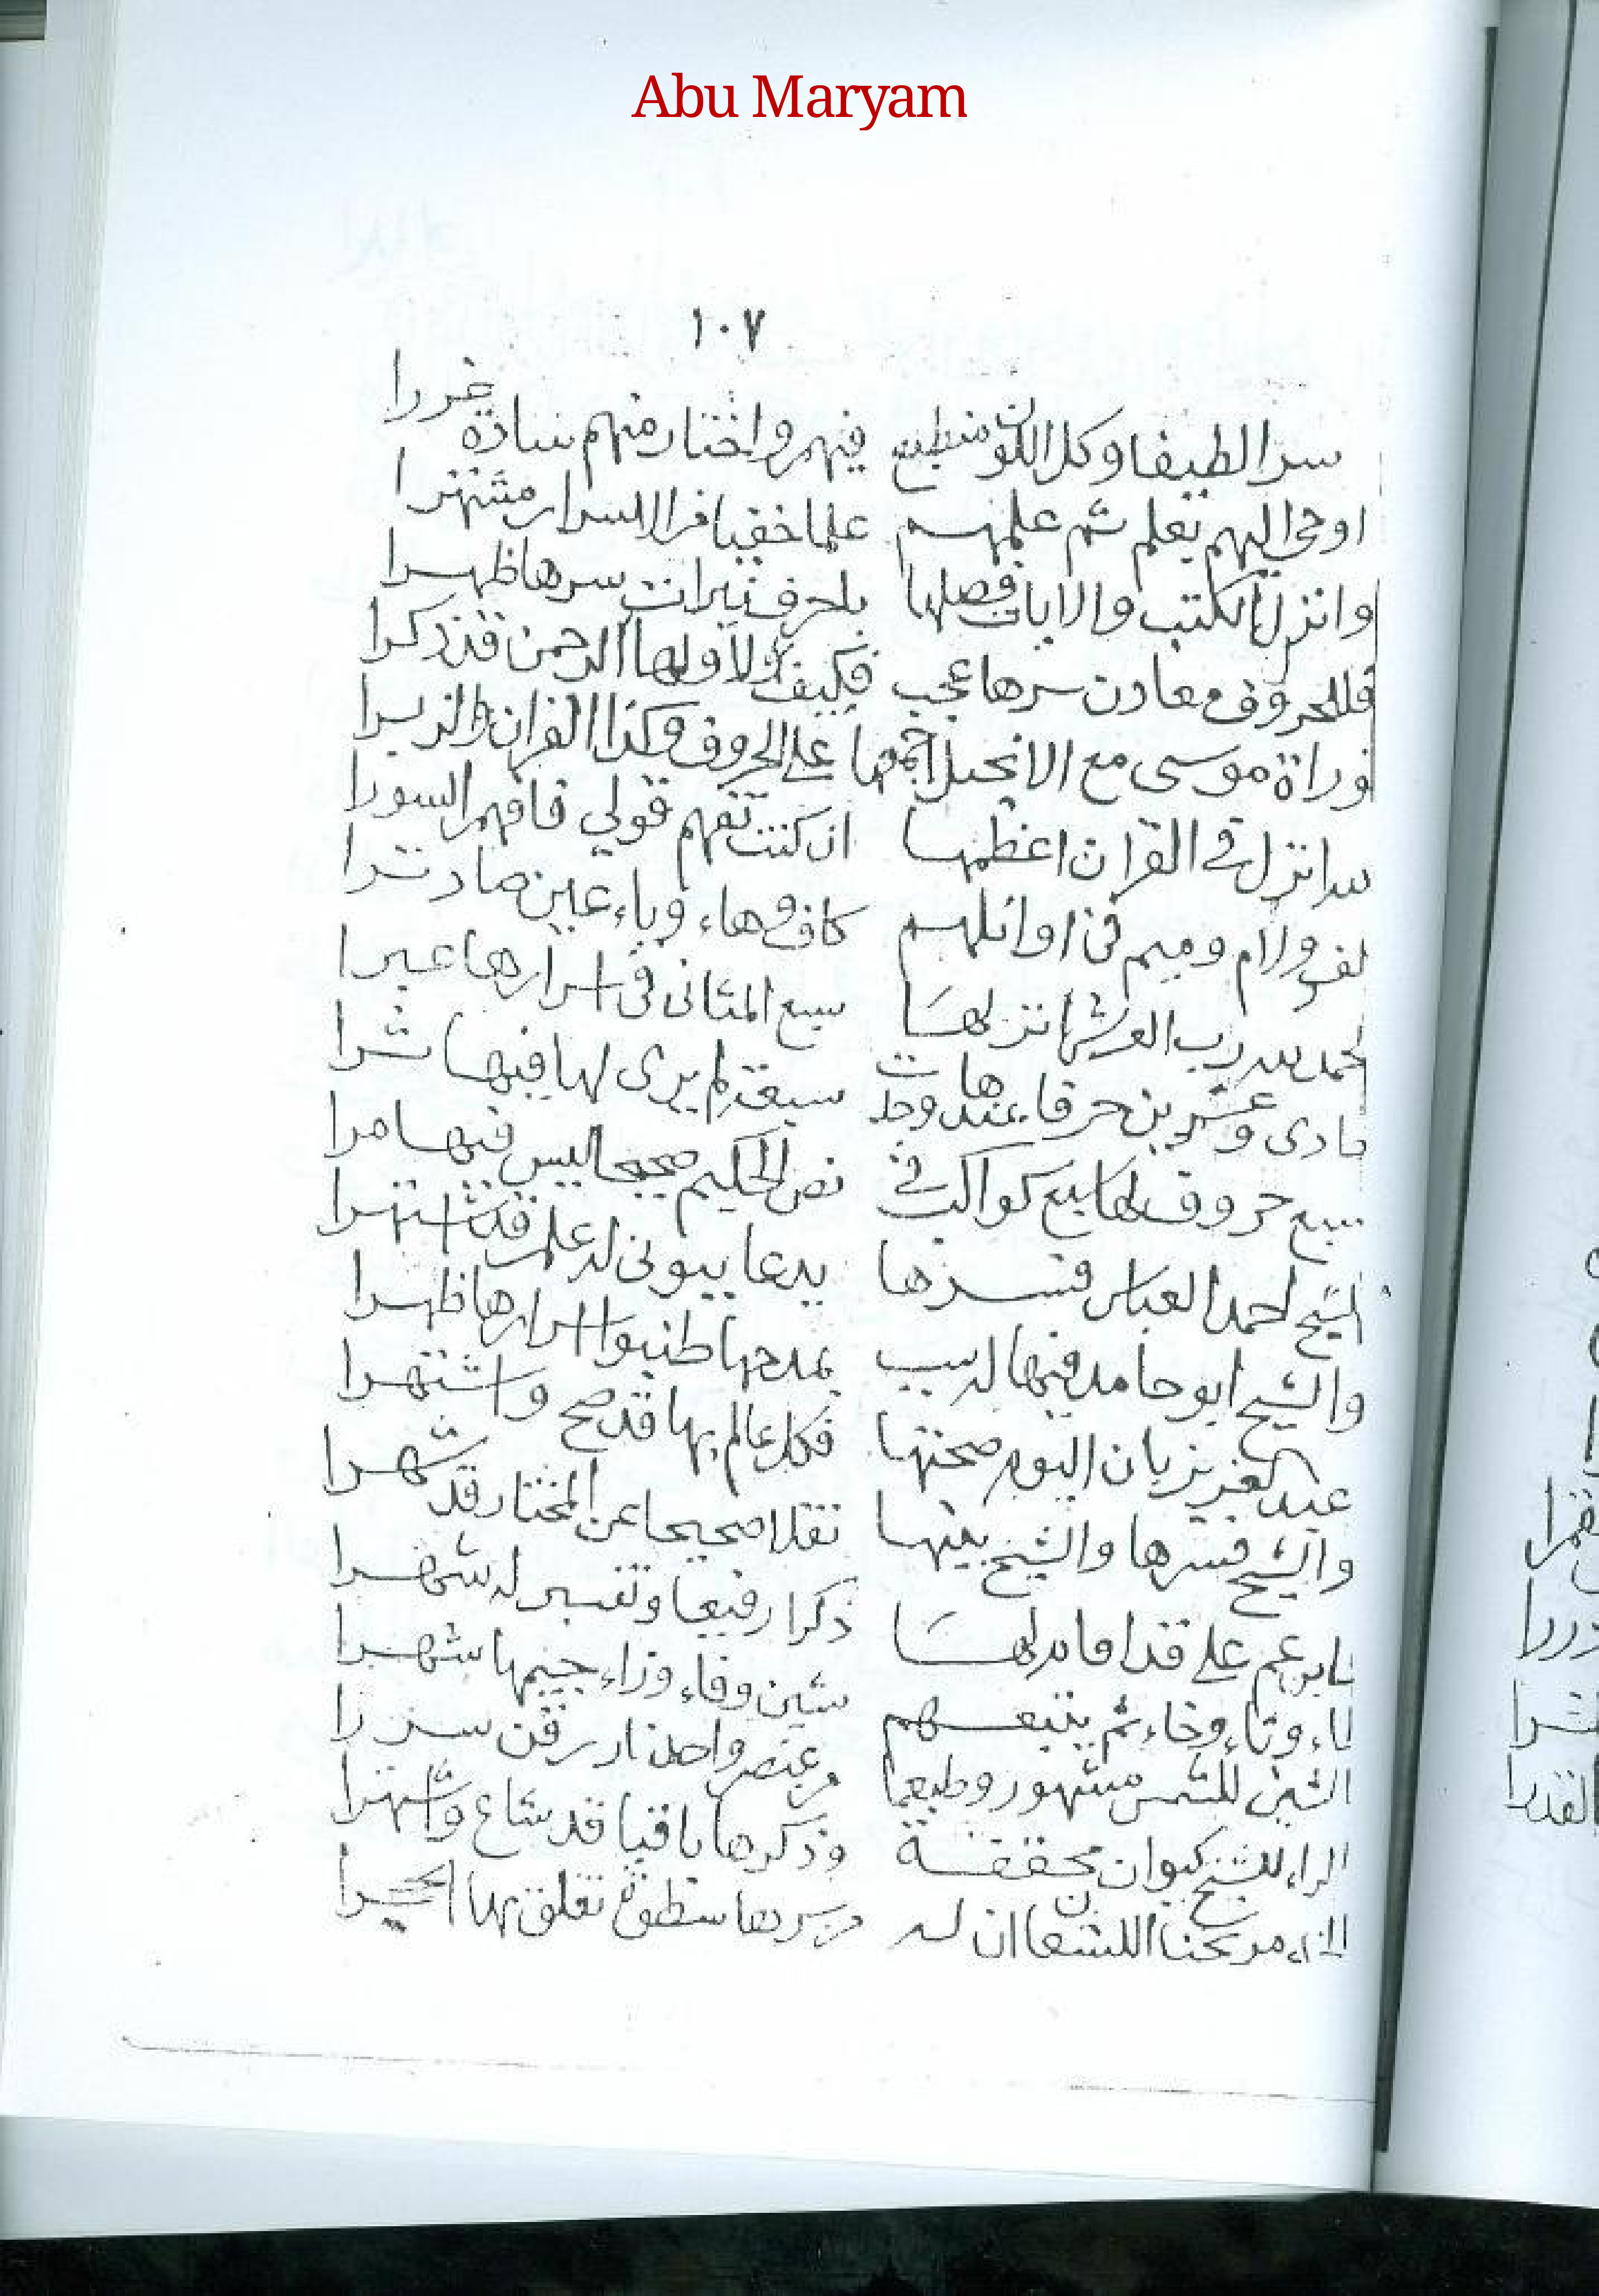 Abu Maryam
١٠٧
سرا لطيفا وكل الكون منطبع فيهم واختار منهم سادة غررا
اوحى اليهم بعلم ثم علمهم علما خفيا الاسرار مشتهرا
وانزل الكتب والايات فصلها باحرف نيرات سرها ظهرا
فللحروف معادن سرها عجب فكيف لا ولها الرحمن قد ذكرا
وراة موسى مع الانجيل اجمعها على الحروف وكذا القران والزبرا
سرا نزل في القران اعظمها ان كنت تفهم قولي فافهم السورا
لف ولام وميم في اوائلهم كاف وهاء وياء عين صاد ترا
لحمد لله رب العرش انزلها سبع المثاني في اسرارها عبرا
حادى وعشرين حرفا عندها وجدت سبعة لم يرى لها فيها شرا
سبع حروف لها سبع كواكب في نص الحكيم صحيحا ليس فيها مرا
الشيخ احمد العباس فسرها يدعا ببوني له علم قد اشتهرا
والشيخ ابو حامد فيها له سبب بمدحها طنبوا اسرارها ظهرا
عبد العزيز بان اليوم صحتها فكل عالم بها قد صح واشتهرا
والشيخ فسرها والشيخ بينها نقلا صحيحا عن المختار قد شهرا
على قدا ما لها ذكرا رفيعا وتفسير له شهرا
ثاء وتاء وخاء ثم يتبعهم شين وفاء وزاء جيمها شهرا
الشين للشمس مشهور وطبعها عنصر واحد نار
الزاء للشيخ كيوان محققة وذكرها باقيا قد شاع واشتهرا
ان له سرها تعلق بها